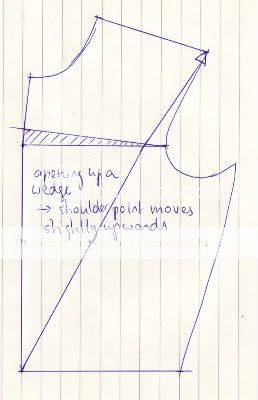 opening up a
wedge
→ shoulder point moves
slightly upwards